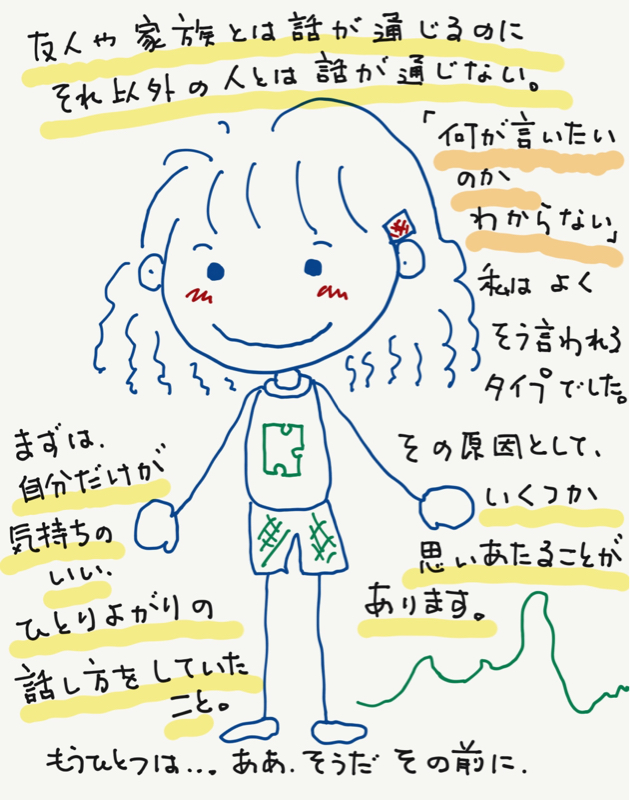 友人や家族とは話が通じるのに
それ以外の人とは話が通じない。
「何が言いたい
のか
わからない」
私はよく
そう言われる
タイプでした。
その原因として、
いくつか
思いあたることが
あります。
まずは、
自分だけが
気持ちの
いい、
ひとりよがりの
話し方をしていた
こと。
もうひとつは...。ああ、そうだ その前に、